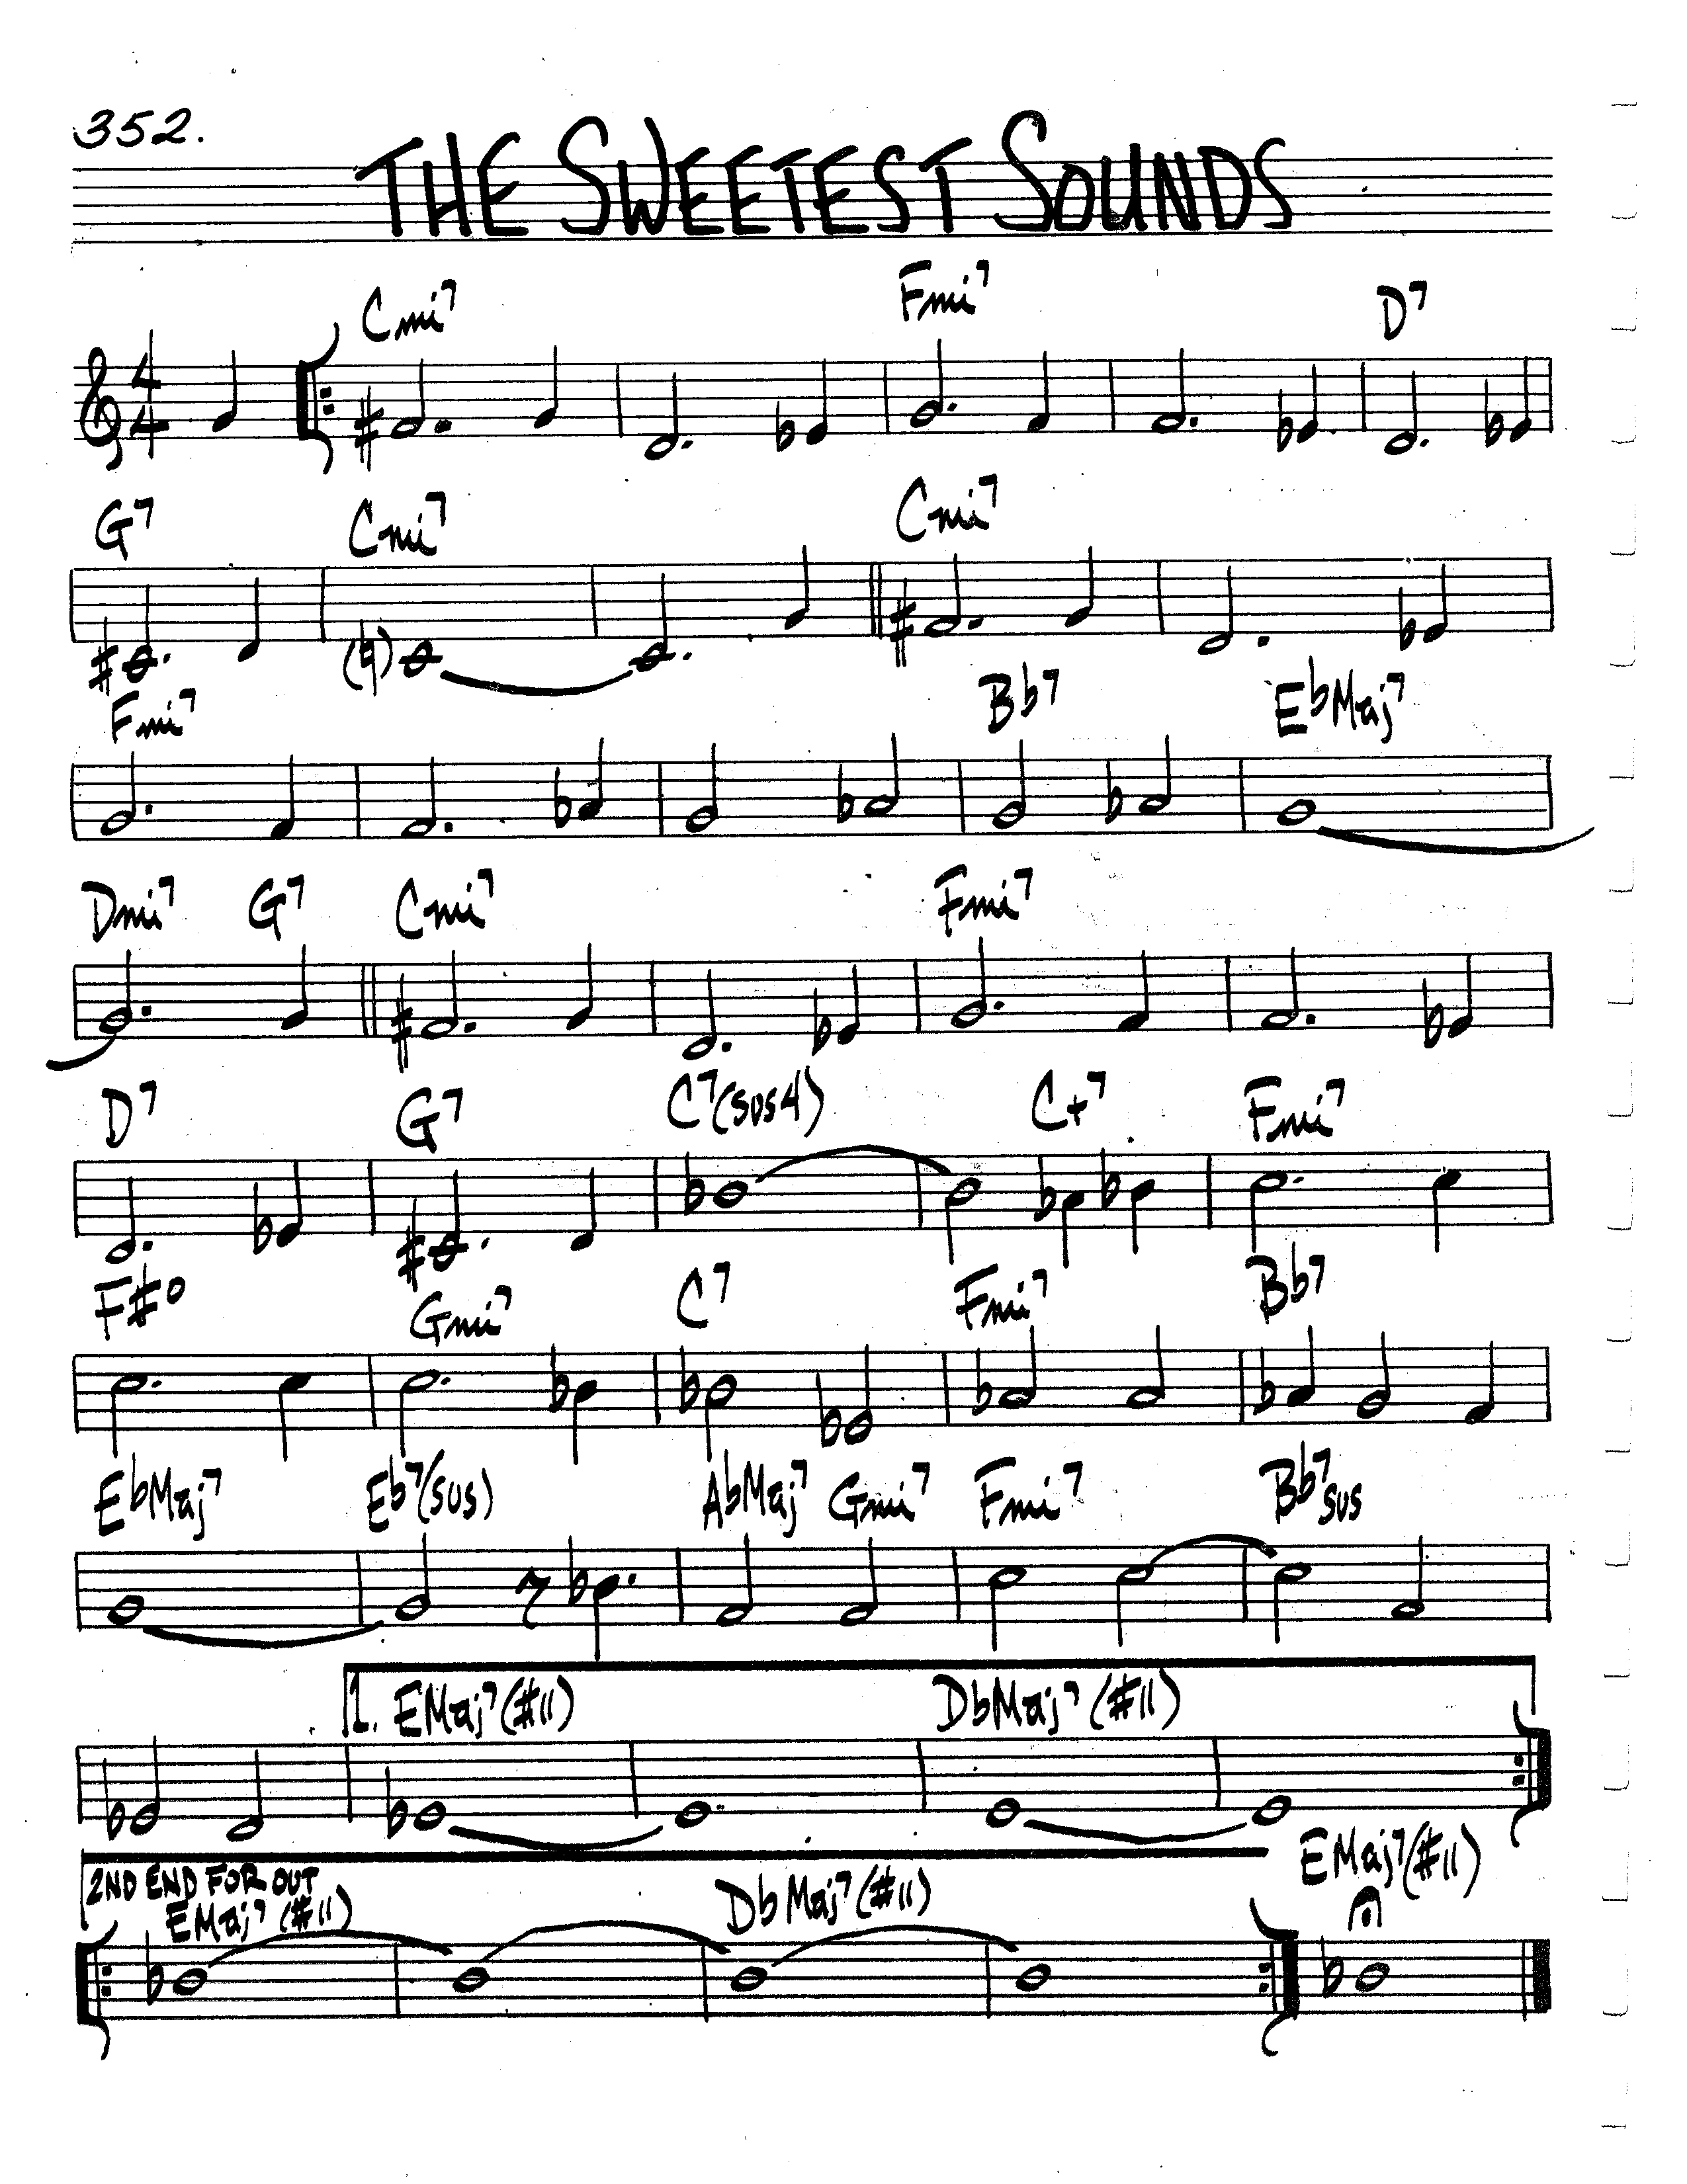 352.
THE SWEETEST SOUNDS
Cmi7 Fmi7 D7
4
4
G7 Cmi7 Cmi7
(♮)
Fmi7 Bb7 EbMaj7
Dmi7 G7 Cmi7 Fmi7
D7 G7 C7(sus4) C+7 Fmi7
F#o Gmi7 C7 Fmi7 Bb7
EbMaj7 Eb7(sus) AbMaj7 Gmi7 Fmi7 Bb7sus
1. EMaj7(#11) DbMaj7(#11)
2ND END FOR OUT
EMaj7(#11) DbMaj7(#11) EMaj7(#11)